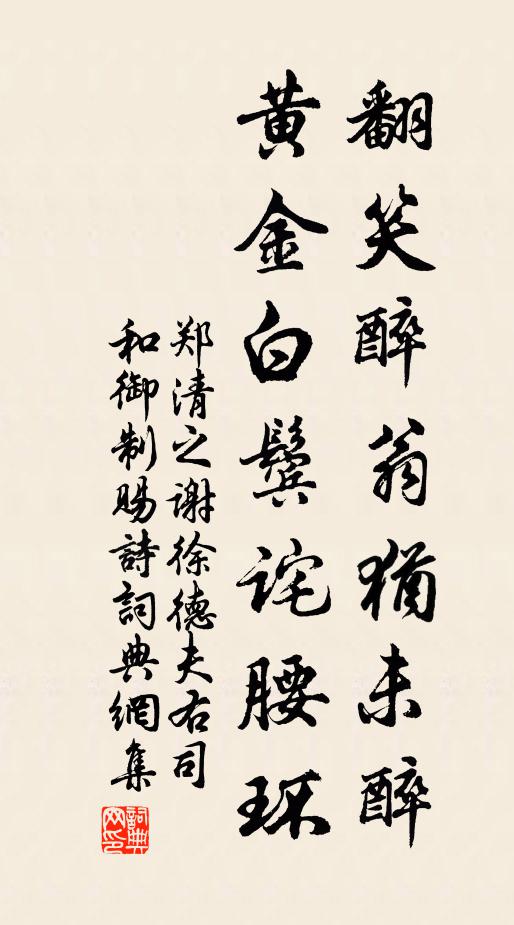 翻笑醉翁犹未醉
黄金白鬓诧腰环
郑清之谢徐德夫右司
和御制賜詩詞典網集
詞典網印